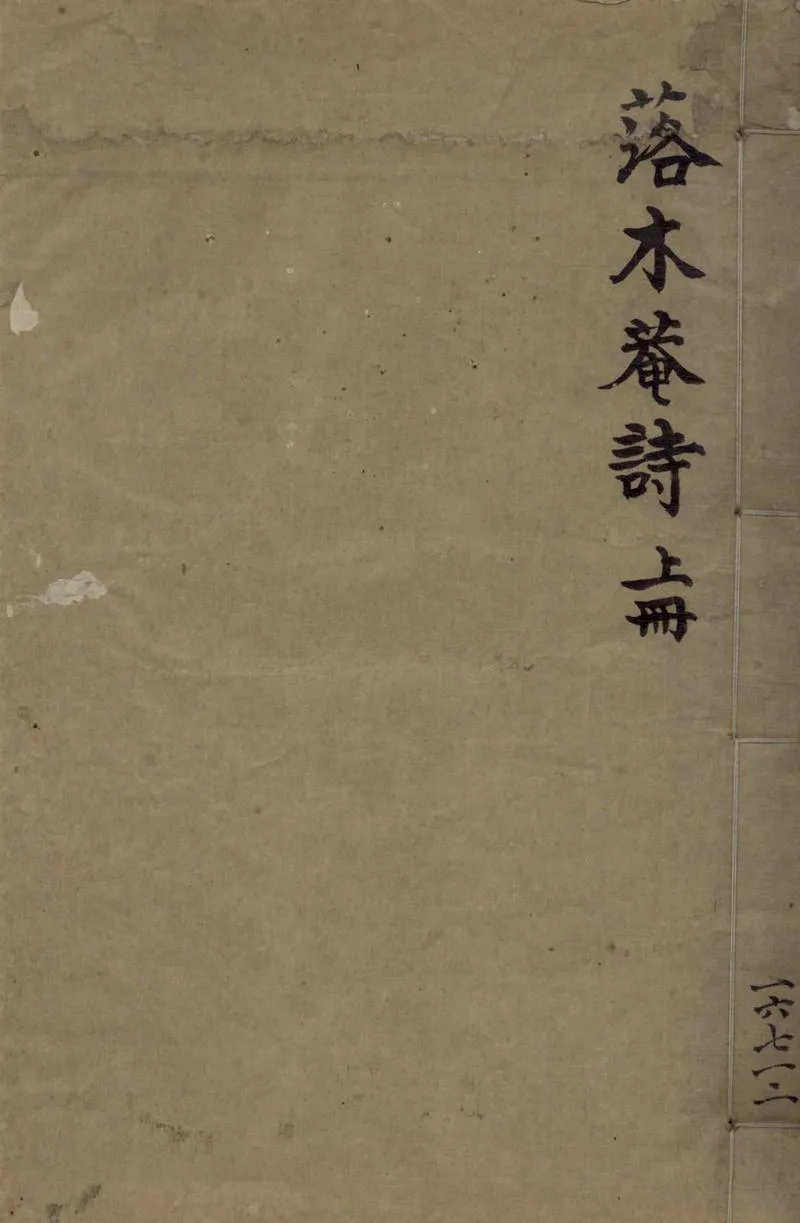 落木菴詩 上冊
一六七一二